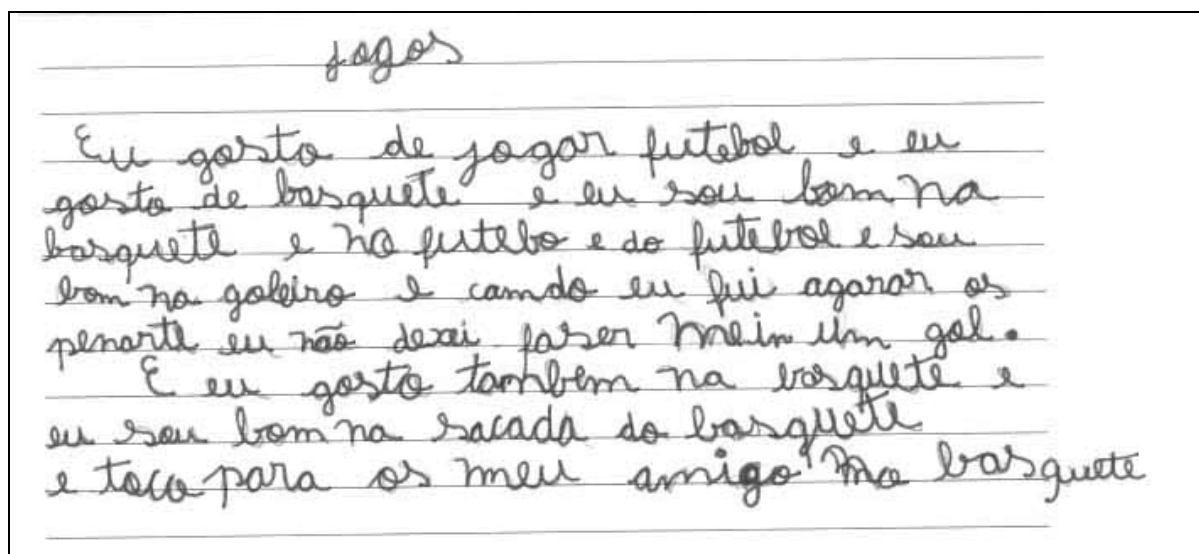 jogos
Eu gosto de jogar futebol e eu
gosto de basquete e eu sou bom na
basquete e na futebo e do futebol e sou
bom na goleiro e camdo eu fui agarar os
penarte eu não dexei faser mein um gol.
E eu gosto tambem na basquete e
eu sou bom na sacada do basquete
e toco para os meu amigo na basquete